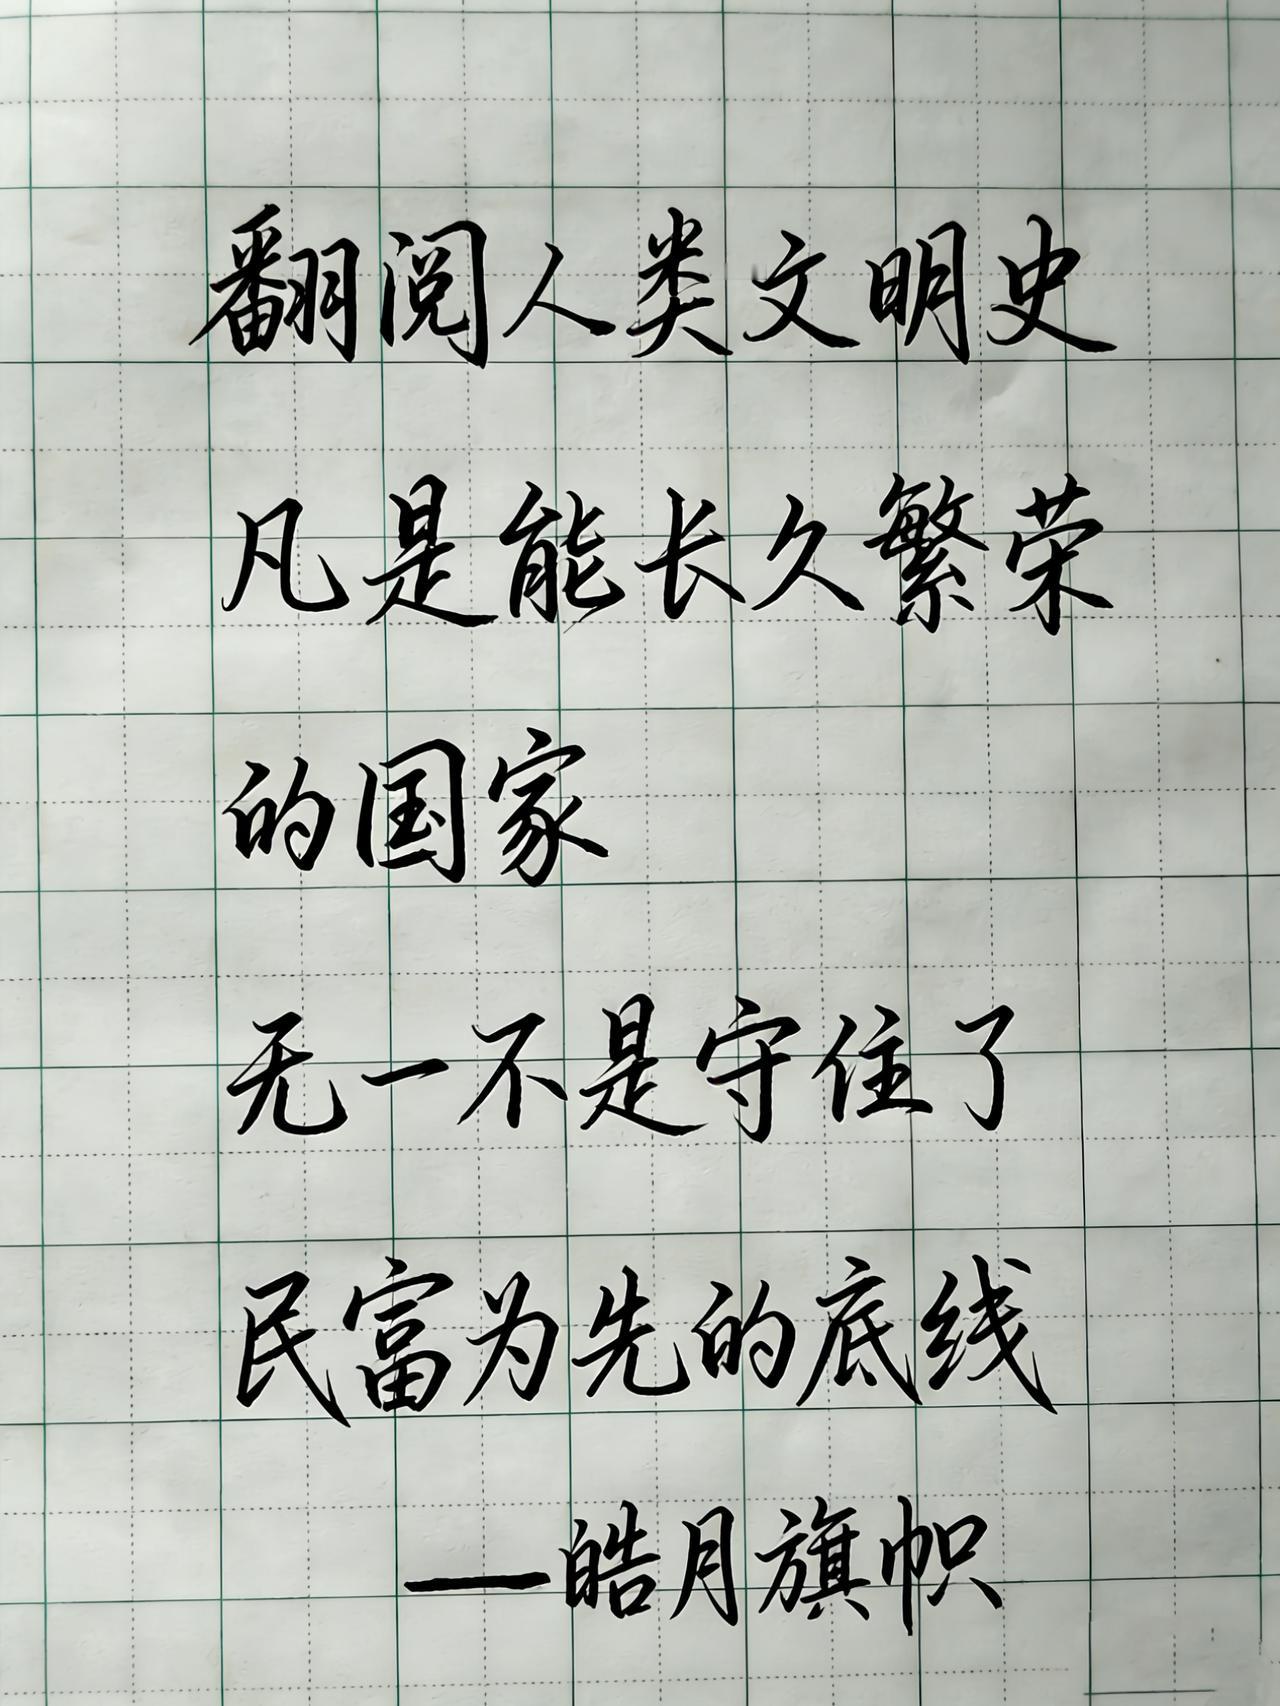 翻阅人类文明史
凡是能长久繁荣
的国家
无一不是守住了
民富为先的底线
——皓月旗帜